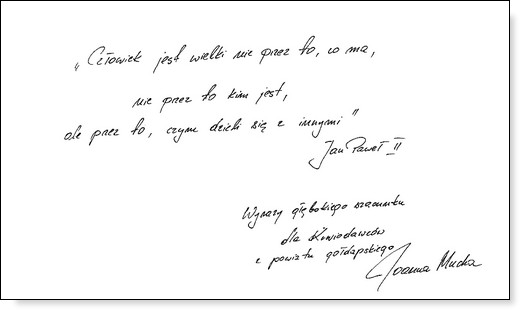 „Człowiek jest wielki nie przez to, co ma,
nie przez to kim jest,
ale przez to, czym dzieli się z innymi"
Jan Paweł II
Wyrazy głębokiego szacunku
dla Krwiodawców
z powiatu gołdapskiego
Joanna Mucha